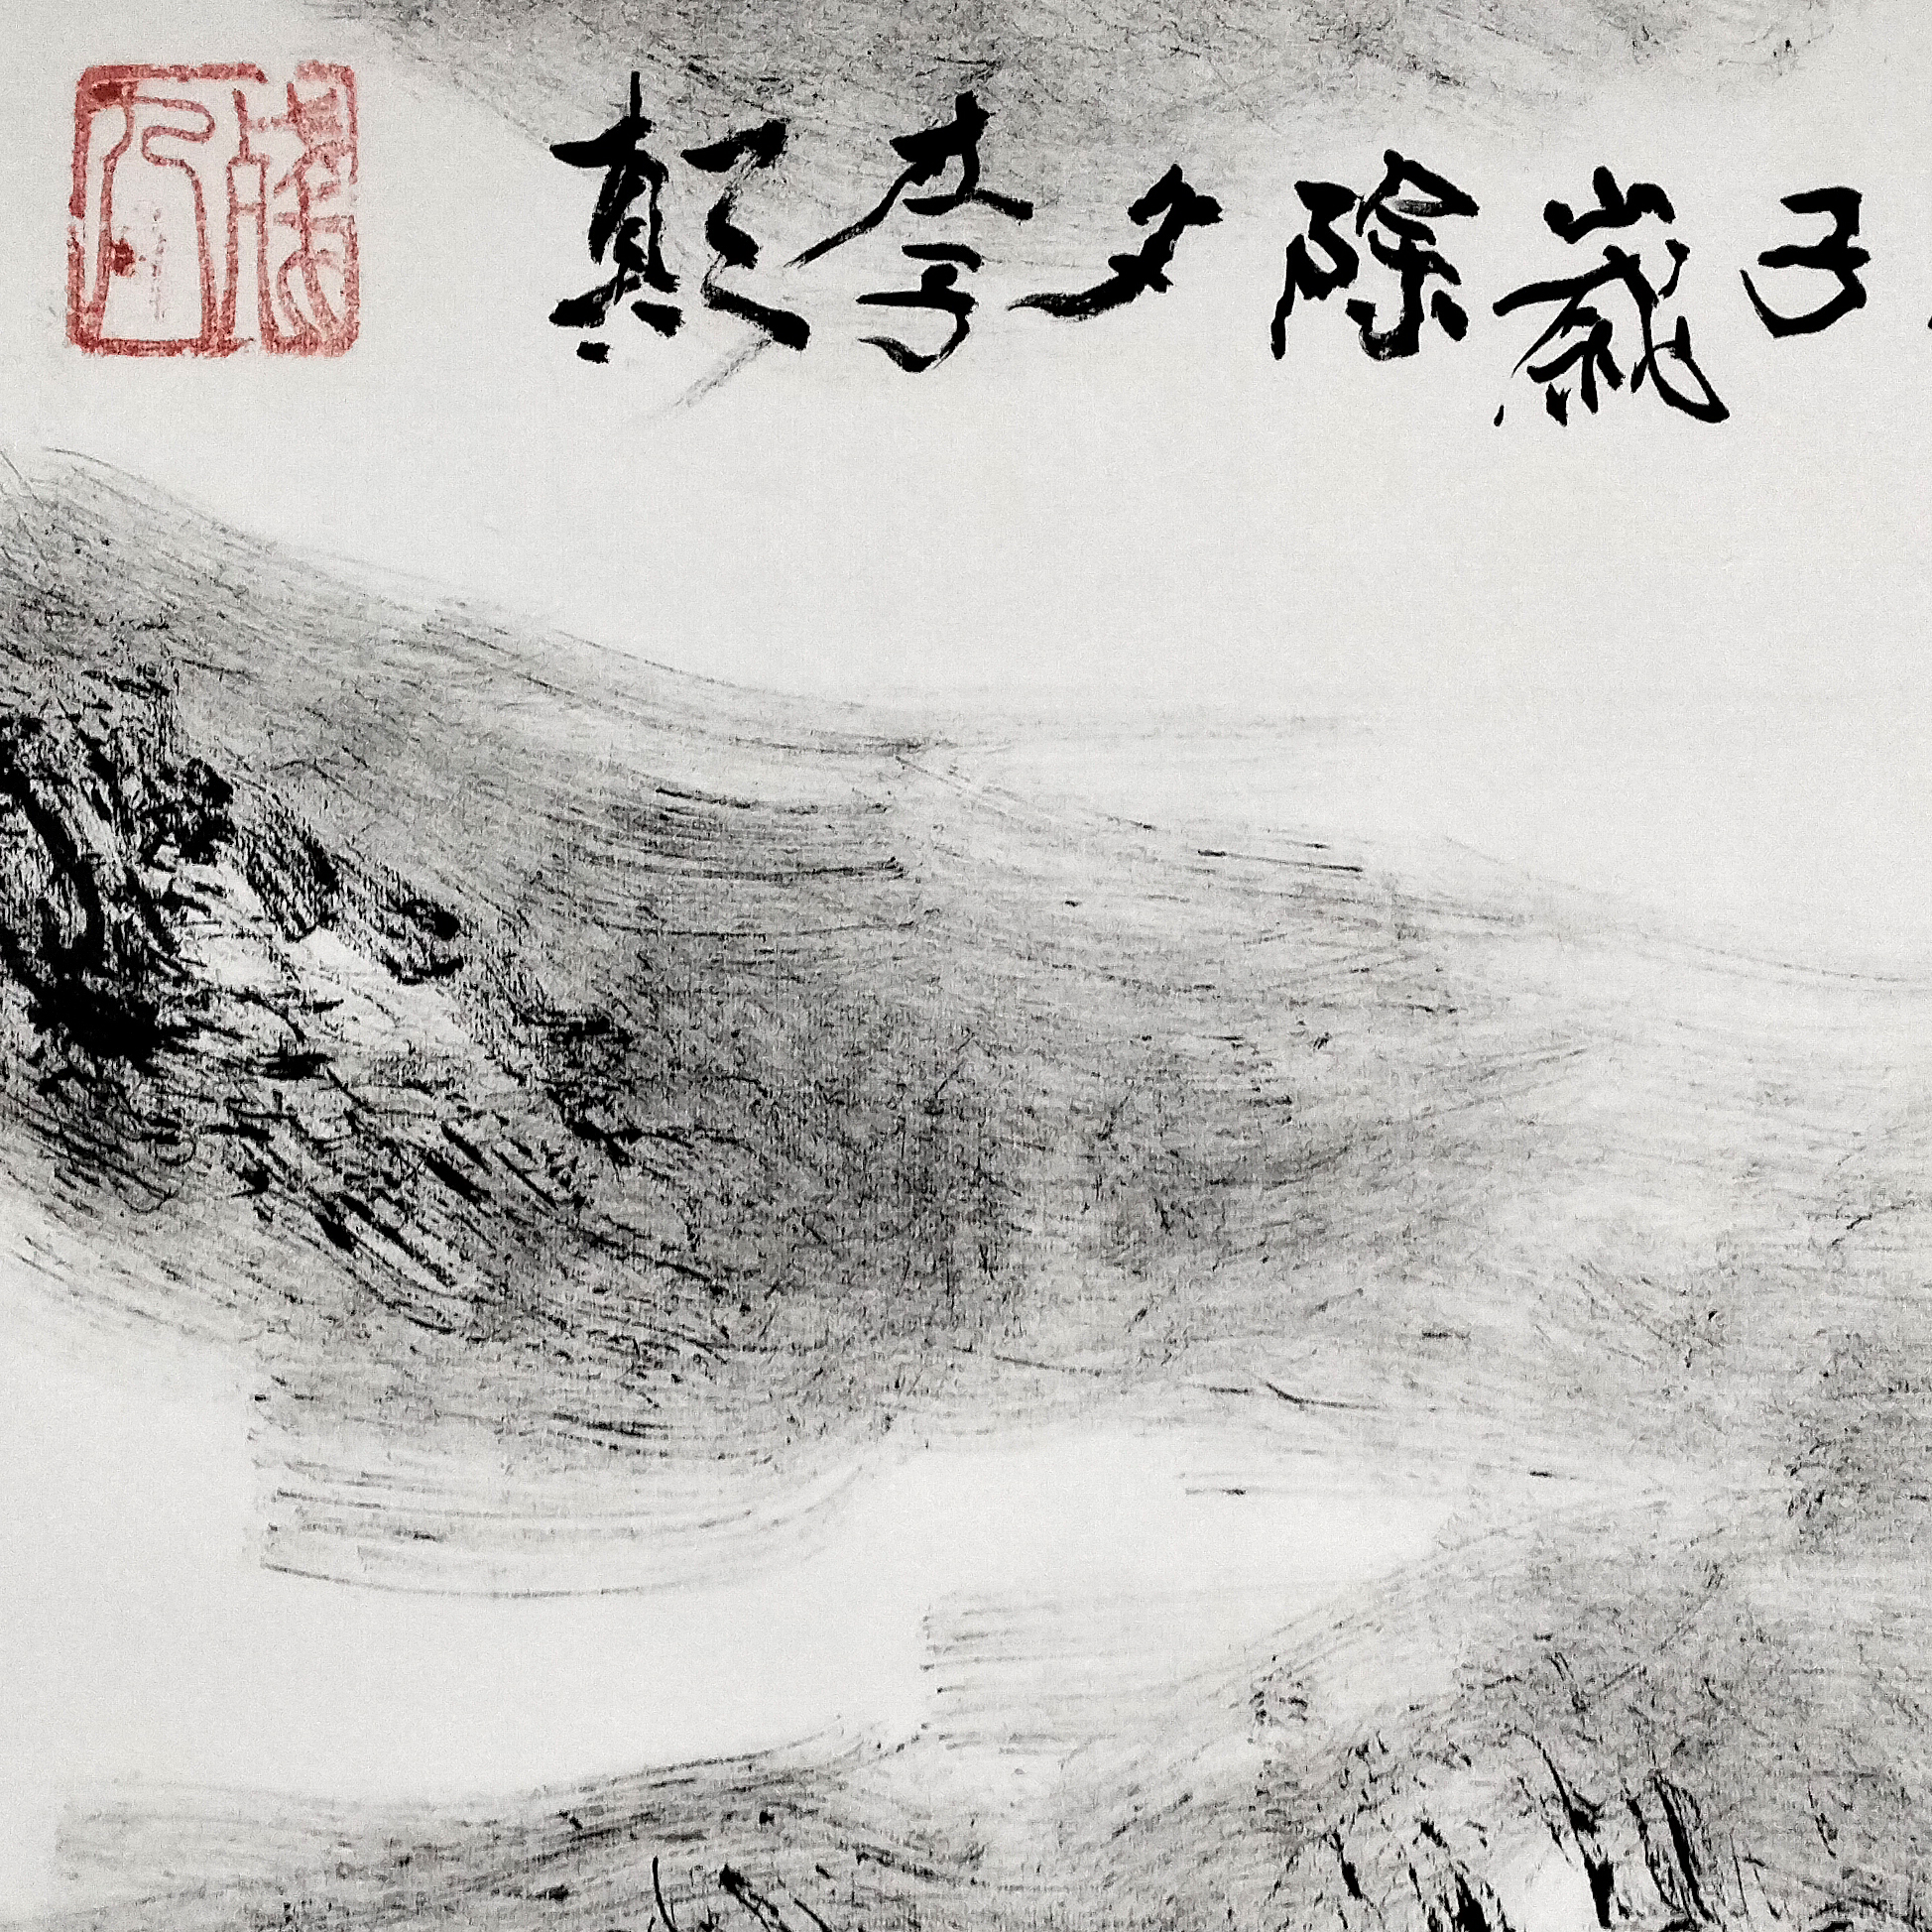 子歲除夕李顛